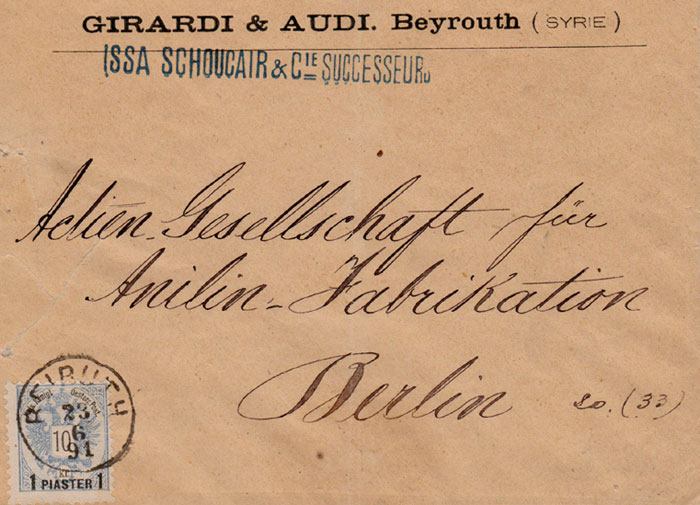 GIRARDI & AUDI. Beyrouth (SYRIE)
ISSA SCHOUCAIR & CIE SUCCESSEURS
Actien-Gesellschaft für
Anilin-Fabrikation
Berlin 20. (33)
BEIRUTH
23
6
91
10
1 PIASTER 1